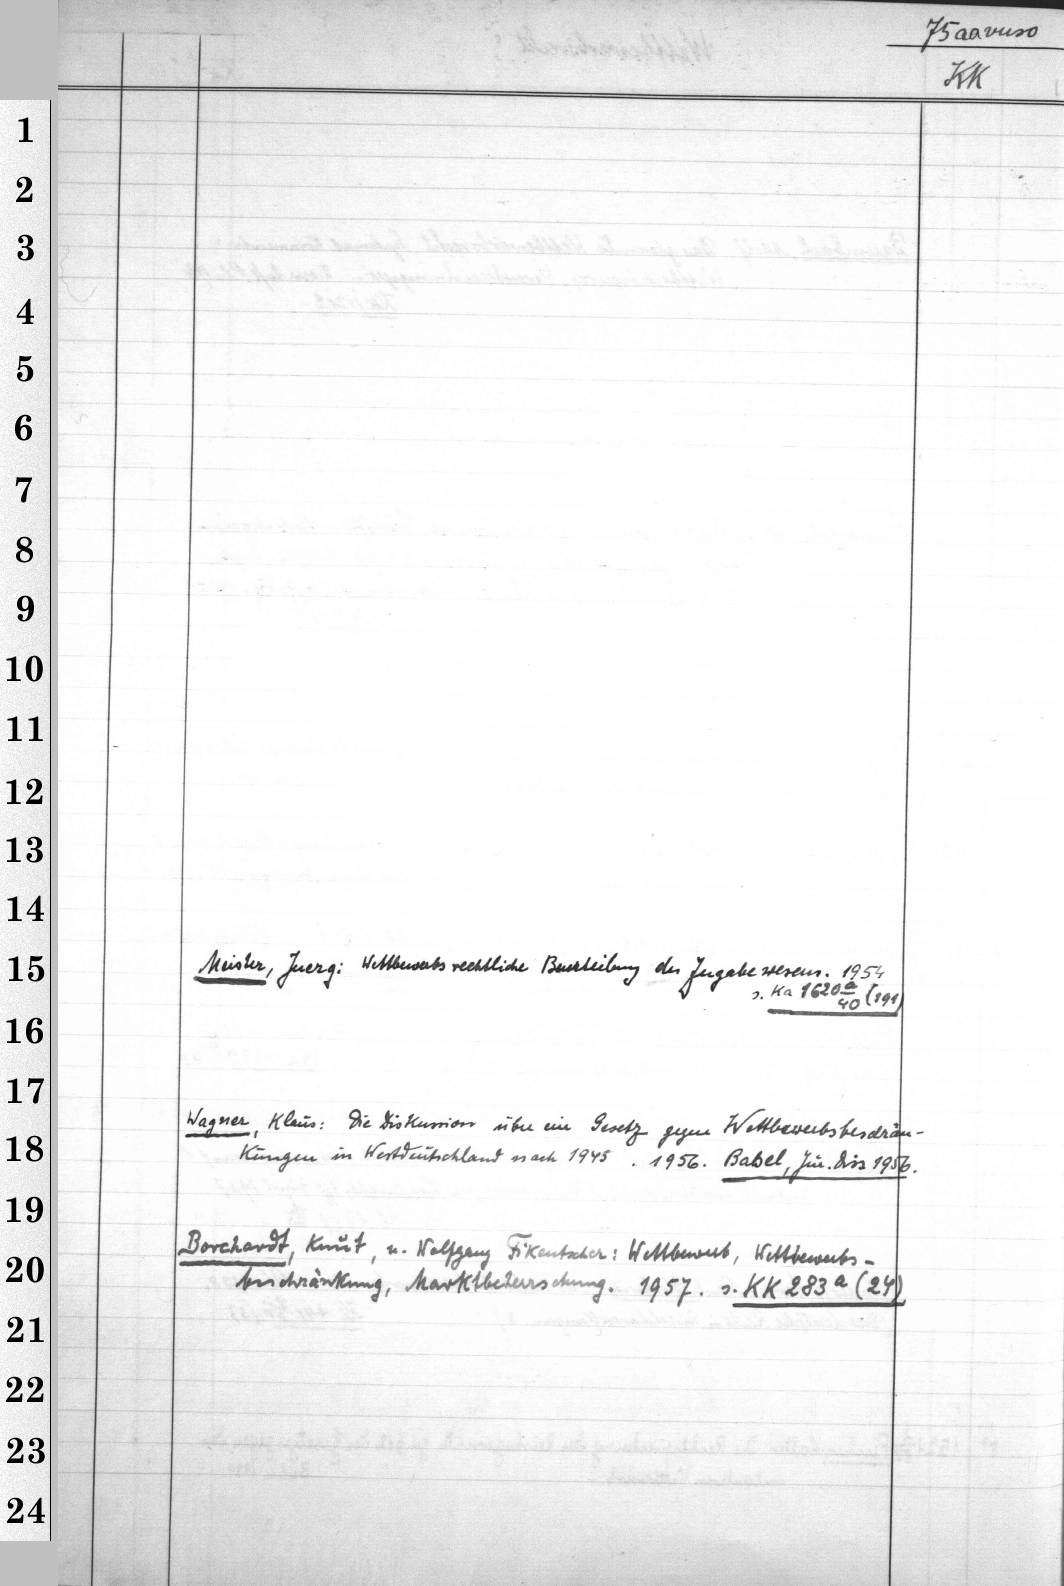 75aavuso
KK
1
2
3
4
5
6
7
8
9
10
11
12
13
14
15
Meister, Juerg: Wettbewerbsrechtliche Beurteilung des Zugabewesens. 1954
s. Ka 1620 a/40 (191)
16
17
Wagner, Klaus: Die Diskussion über ein Gesetz gegen Wettbewerbsbeschrän-
18
kungen in Westdeutschland nach 1945. 1956. Basel, Jur. Diss 1956.
19
Borchardt, Knut, u. Wolfgang Fikentscher: Wettbewerb, Wettbewerbs-
20
beschränkung, Marktbeherrschung. 1957. s. KK 283 a (24)
21
22
23
24